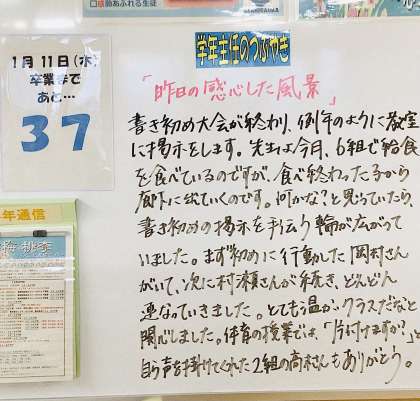 感動あふれる生徒
1月11日(水)
卒業まで
あと…
37
学年主任のつぶやき
「昨日の感心した風景」
書き初め大会が終わり、例年のように教室
に掲示をします。先生は今月、6組で給食
を食べているのですが、食べ終わった子から
廊下に出ていくのです。何かな?と思っていたら、
書き初めの掲示を手伝う輪が広がって
いました。まず初めに行動した岡村さん
がいて、次に村瀬さんが続き、どんどん
連なっていきました。とても温かいクラスだなと
関心しました。体育の授業では、「片付けますか?」と
自ら声を掛けてくれた2組の高村さんもありがとう。
年通信